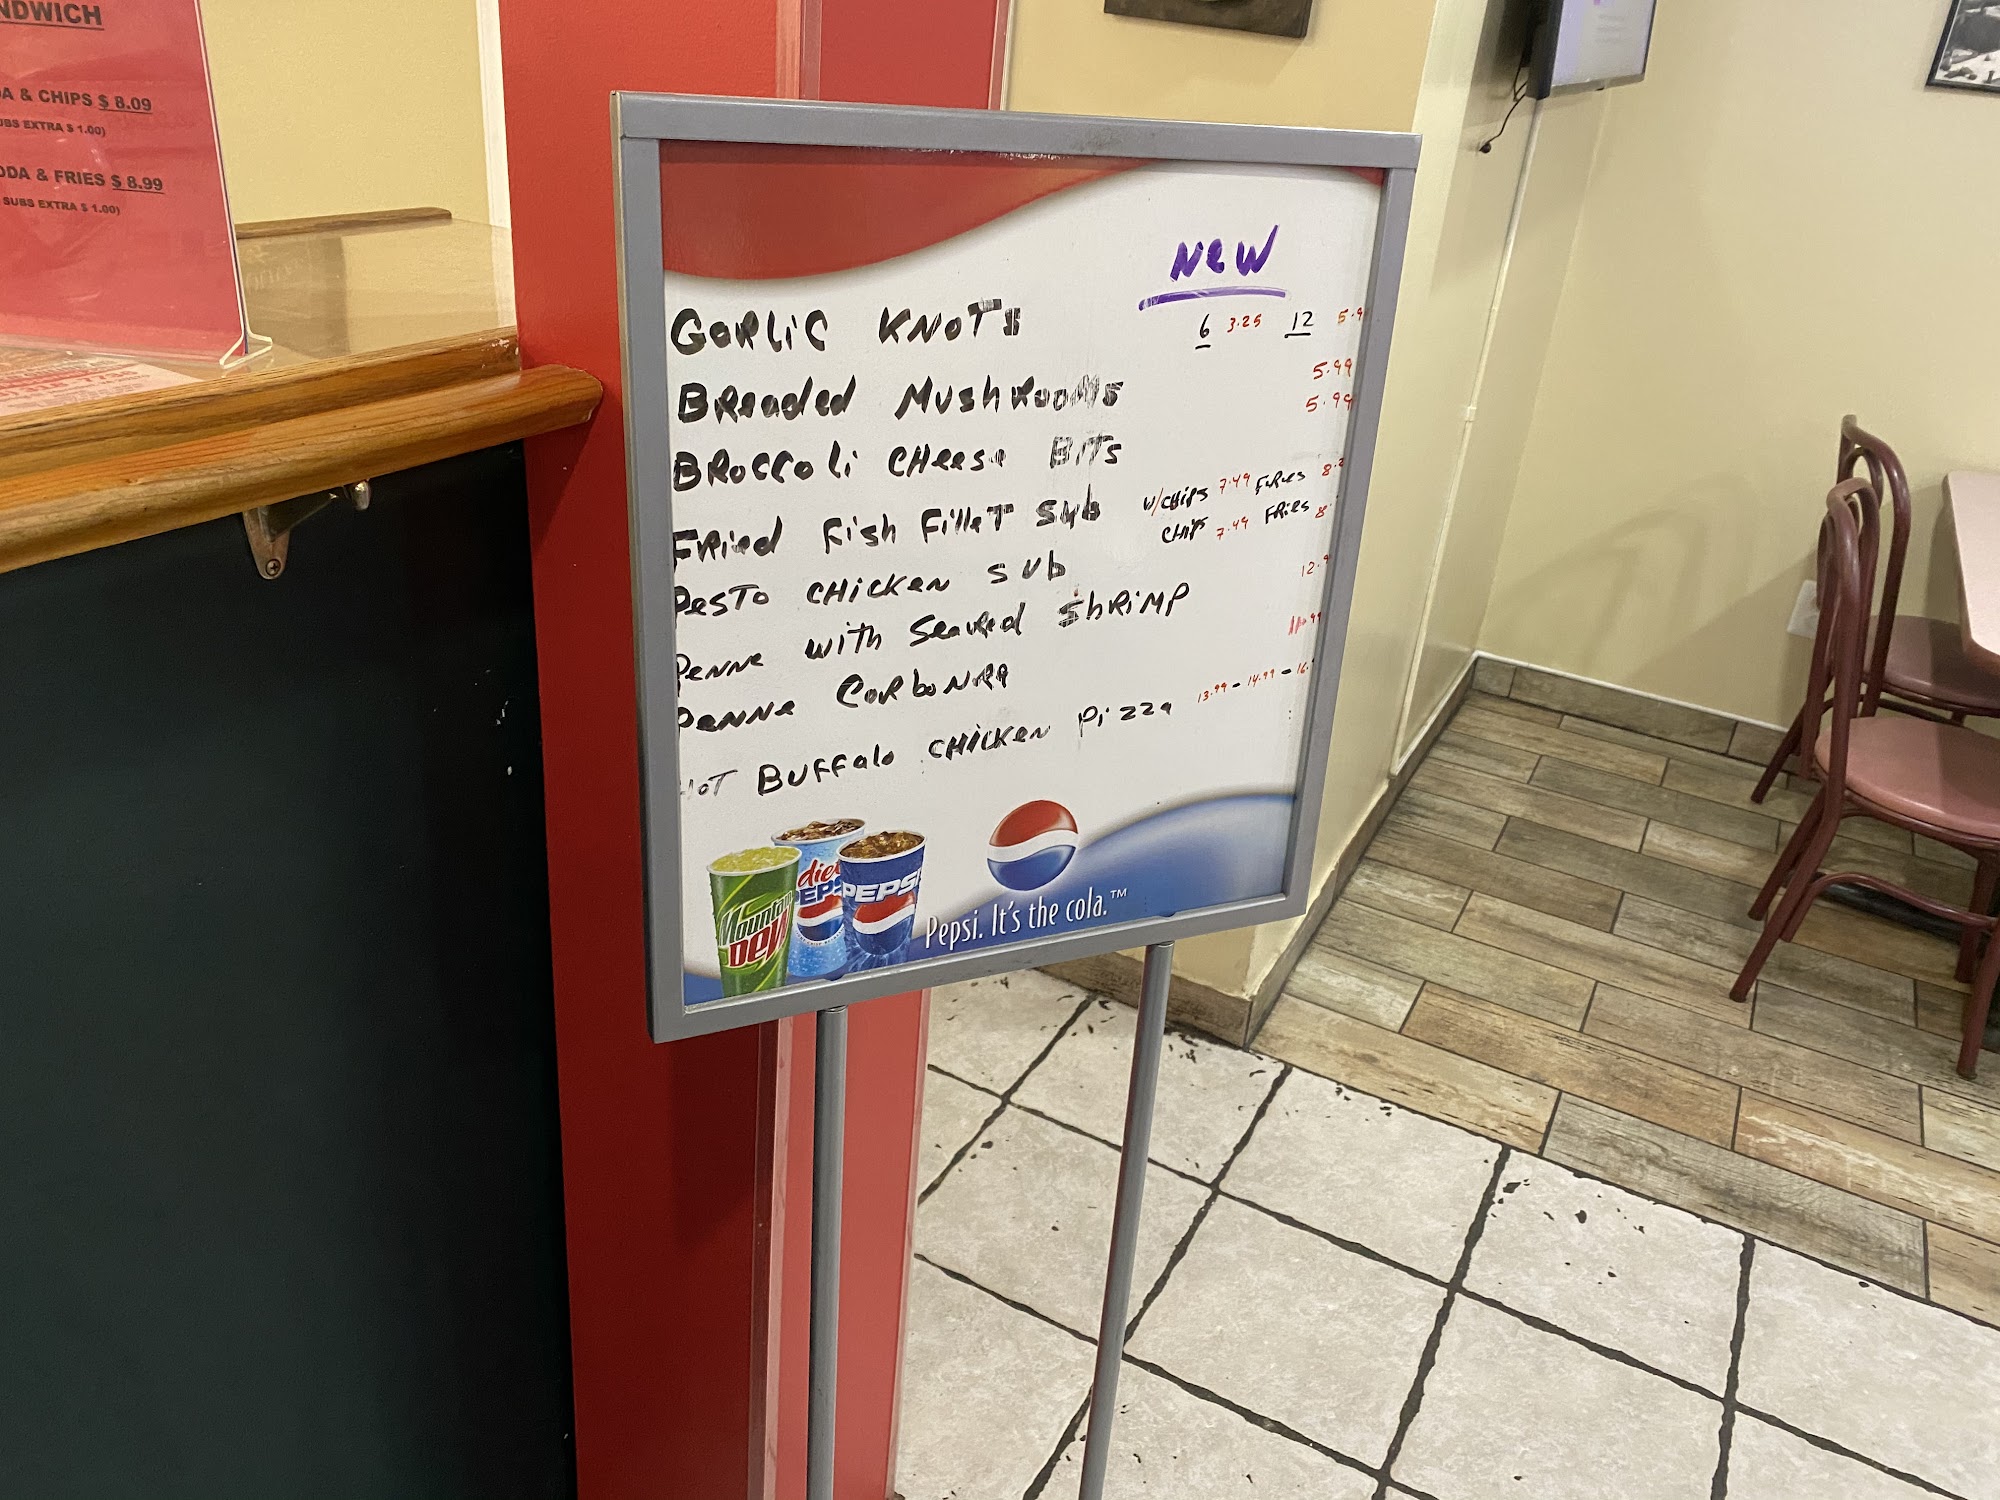 NDWICH
A & CHIPS $ 8.09
UBS EXTRA $ 1.00)
ODA & FRIES $ 8.99
SUBS EXTRA $ 1.00)
New
GaRLiC KNoTS 6 3.25 12 5.9
BReaded MushRooms 5.99
BRoccoLi CHeese BiTs 5.99
FRied Fish FilleT Sub W/CHiPS 7.49 FRies 8.2
PesTo CHicKeN sub CHiPS 7.49 FRies 8.
PeNNe wiTh Seaured ShRiMP 12.9
PeNNe CaRboNaRa 11.99
HoT BuFFalo CHicKeN Pizza 13.99 - 14.99 - 16.
Mountain Dew
diet PEPSI
PEPSI
Pepsi. It's the cola.™